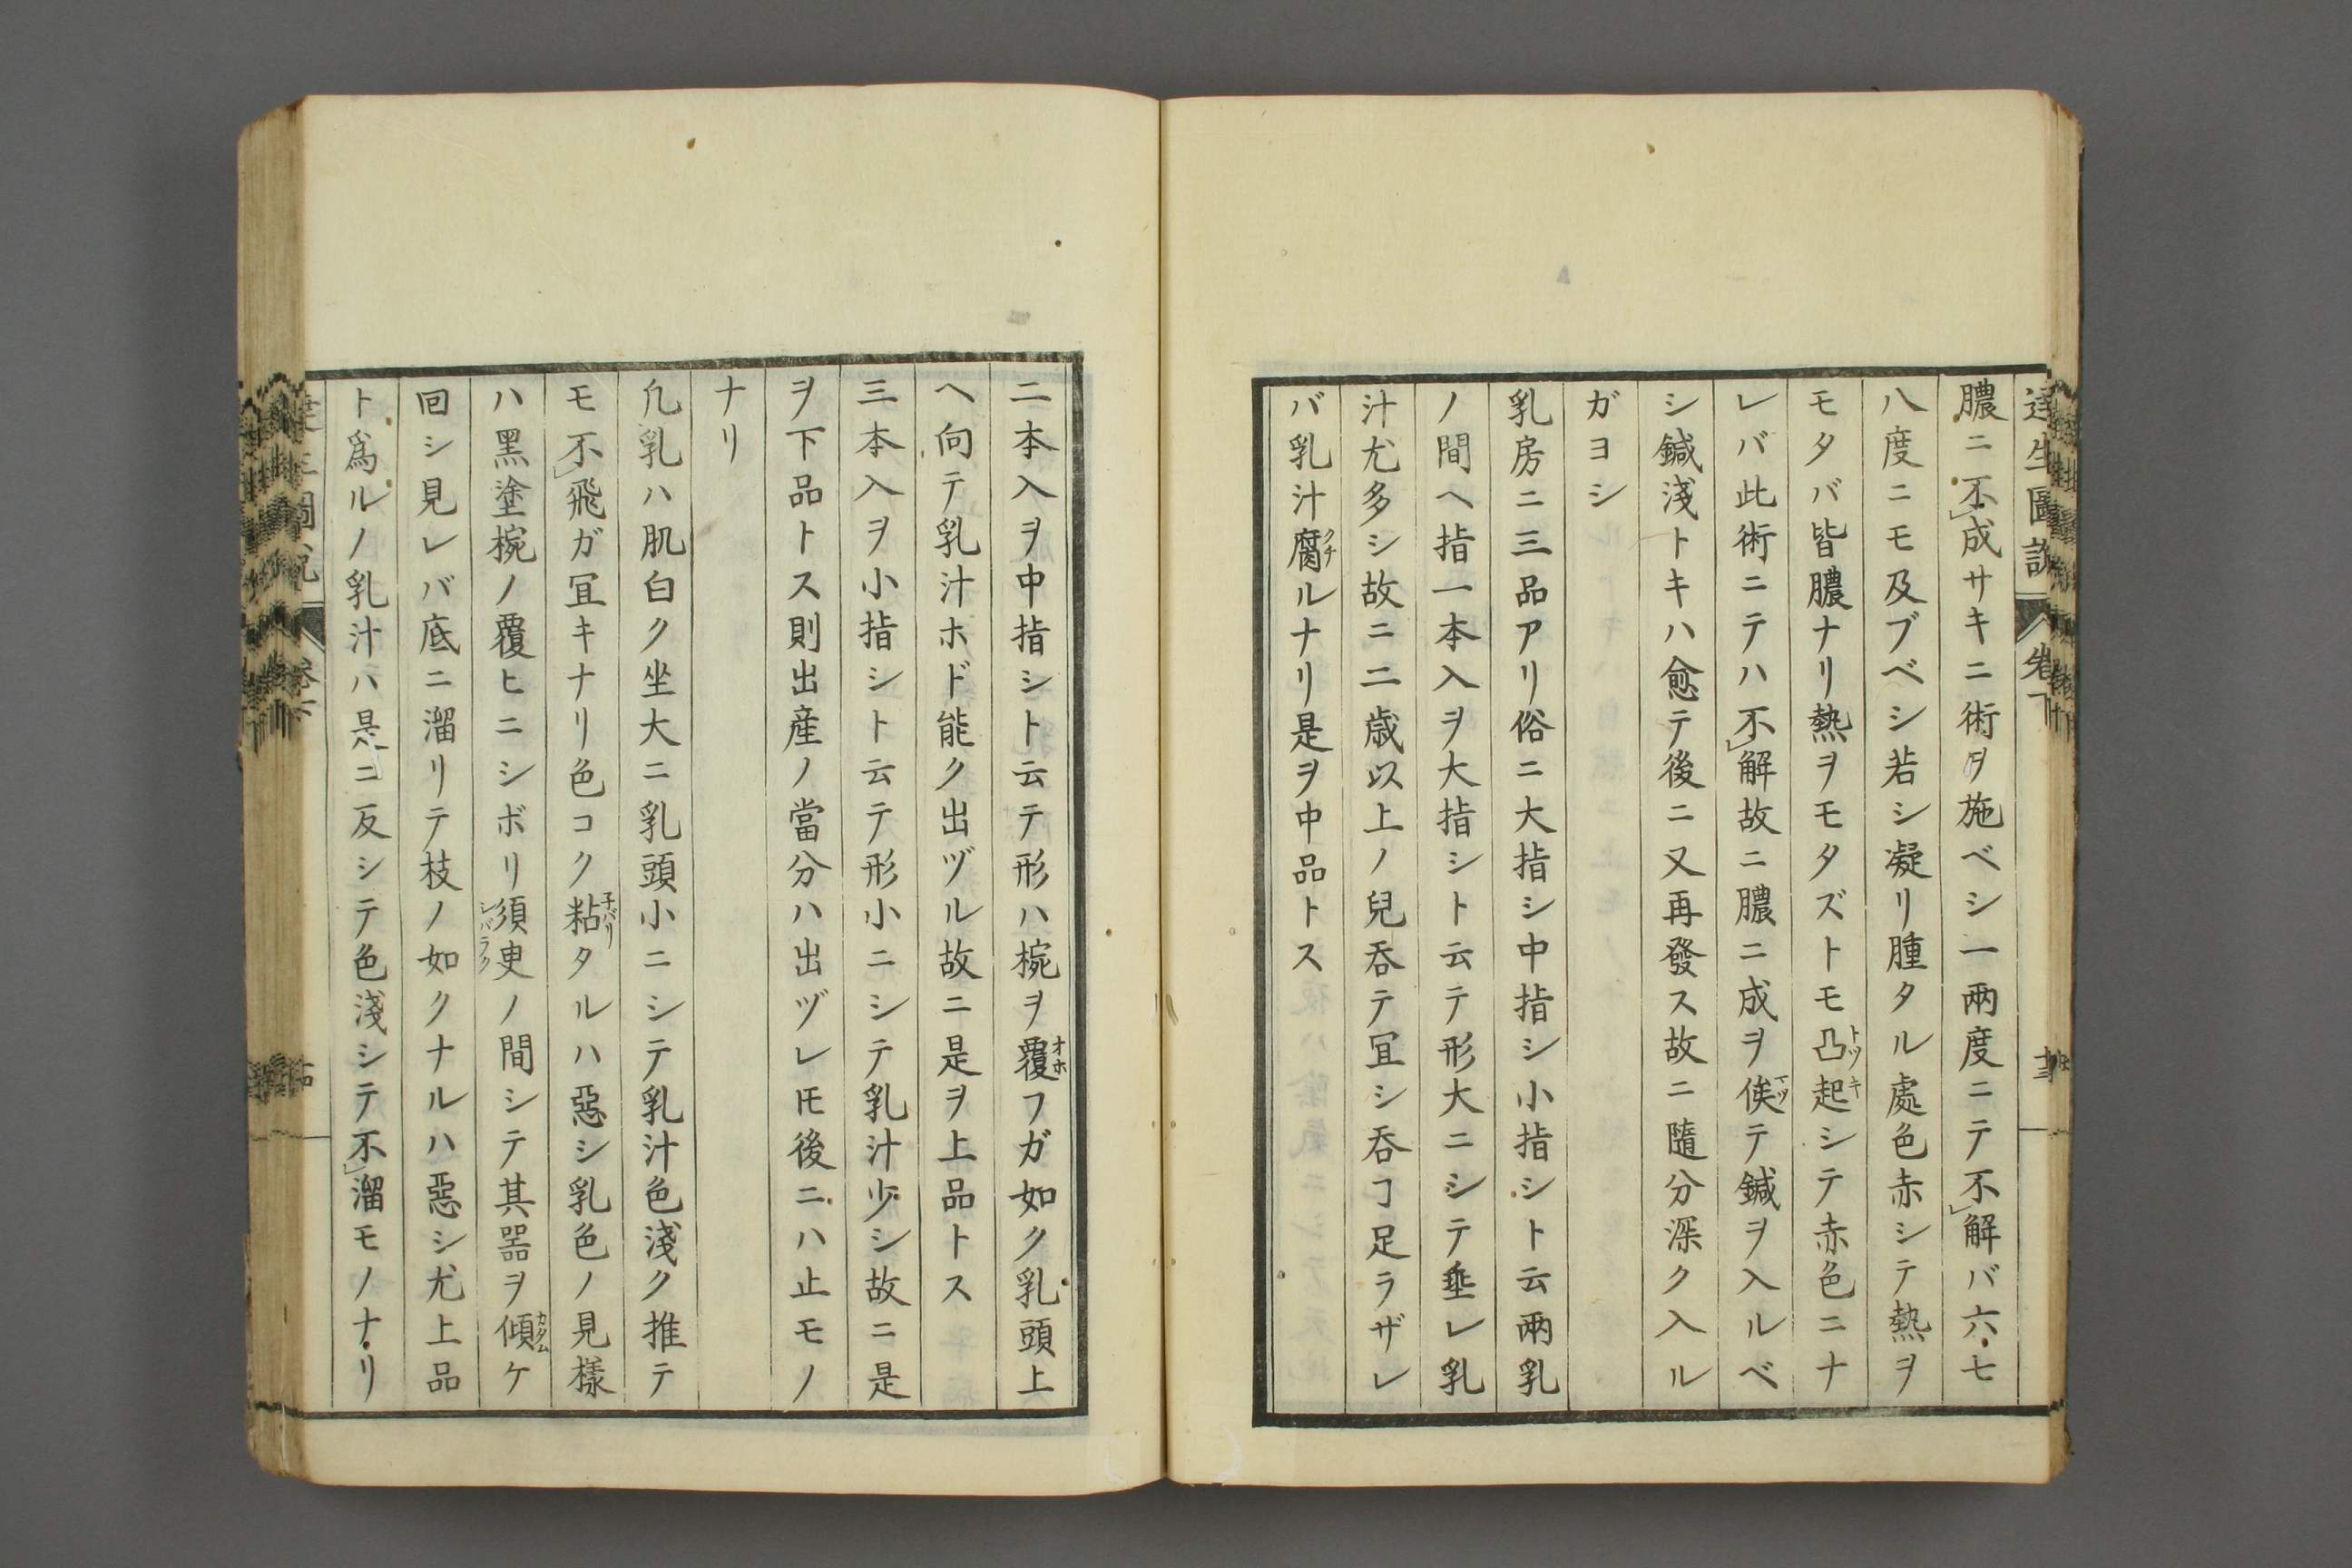 達生圖說
卷下
膿ニ不レ成サキニ術ヲ施ベシ一兩度ニテ不レ解バ六七
八度ニモ及ブベシ若シ凝リ腫タル處色赤シテ熱ヲ
モタバ皆膿ナリ熱ヲモタズトモ凸起トツキシテ赤色ニナ
レバ此術ニテハ不レ解故ニ膿ニ成ヲ俟マツテ鍼ヲ入ルベ
シ鍼淺トキハ愈テ後ニ又再發ス故ニ隨分深ク入ル
ガヨシ
乳房ニ三品アリ俗ニ大指シ中指シ小指シト云兩乳
ノ間ヘ指一本入ヲ大指シト云テ形大ニシテ垂レ乳
汁尤多シ故ニ二歳以上ノ兒呑テ冝シ呑ヿ足ラザレ
バ乳汁腐クチルナリ是ヲ中品トス
二本入ヲ中指シト云テ形ハ椀ヲ覆オホフガ如ク乳頭上
ヘ向テ乳汁ホド能ク出ヅル故ニ是ヲ上品トス
三本入ヲ小指シト云テ形小ニシテ乳汁少シ故ニ是
ヲ下品トス則出産ノ當分ハ出ヅレ𪜈後ニハ止モノ
ナリ
凢乳ハ肌白ク坐大ニ乳頭小ニシテ乳汁色淺ク推テ
モ不レ飛ガ冝キナリ色コク粘子バリタルハ惡シ乳色ノ見樣
ハ黑塗椀ノ覆ヒニシボリ須臾シバラクノ間シテ其器ヲ傾カタムケ
回シ見レバ底ニ溜リテ枝ノ如クナルハ惡シ尤上品
ト爲ルノ乳汁ハ是ニ反シテ色淺シテ不レ溜モノナリ